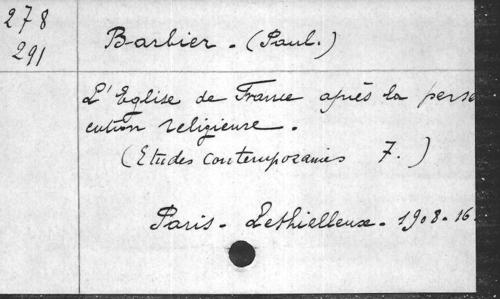 278
291
Barbier. (Paul.)
L'Eglise de France après la persé
cution religieuse.
(Etudes contemporaines 7.)
Paris. Lethielleux. 1908. 16.